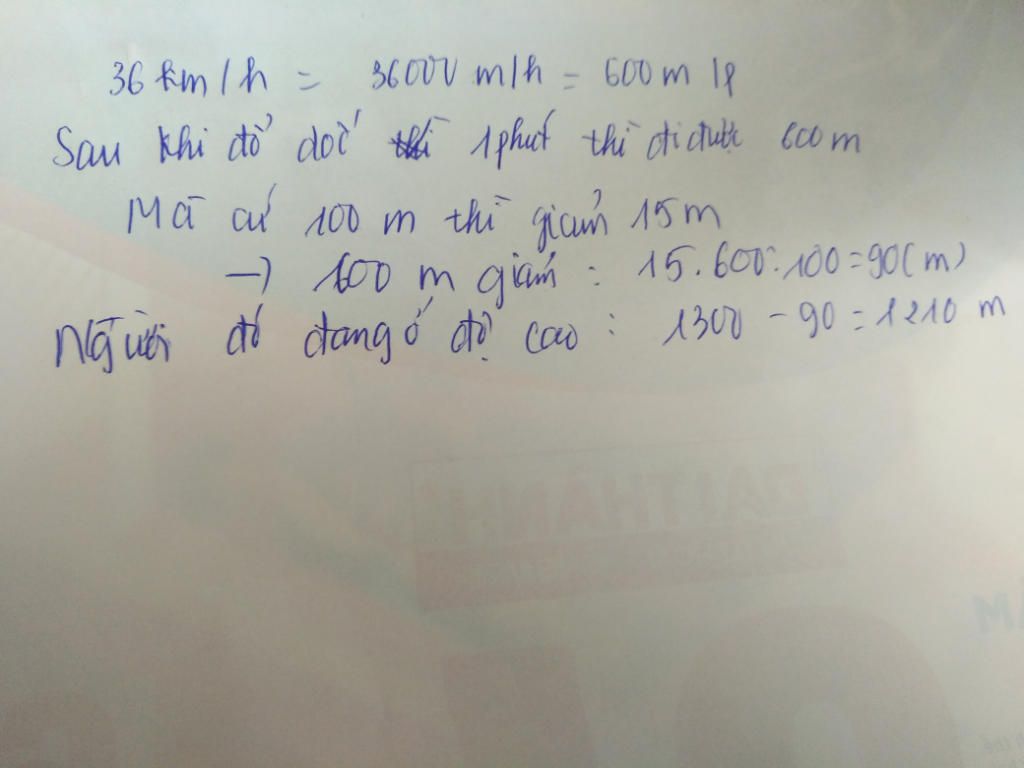 36 km/h = 36000 m/h = 600 m/p
Sau khi đổ dốc thì 1 phút thì đi được 600 m
Mà cứ 100 m thì giảm 15 m
→ 600 m giảm : 15.600:100 = 90 (m)
Người đó đang ở độ cao : 1300 - 90 = 1210 m
ĐẠI THÀNH